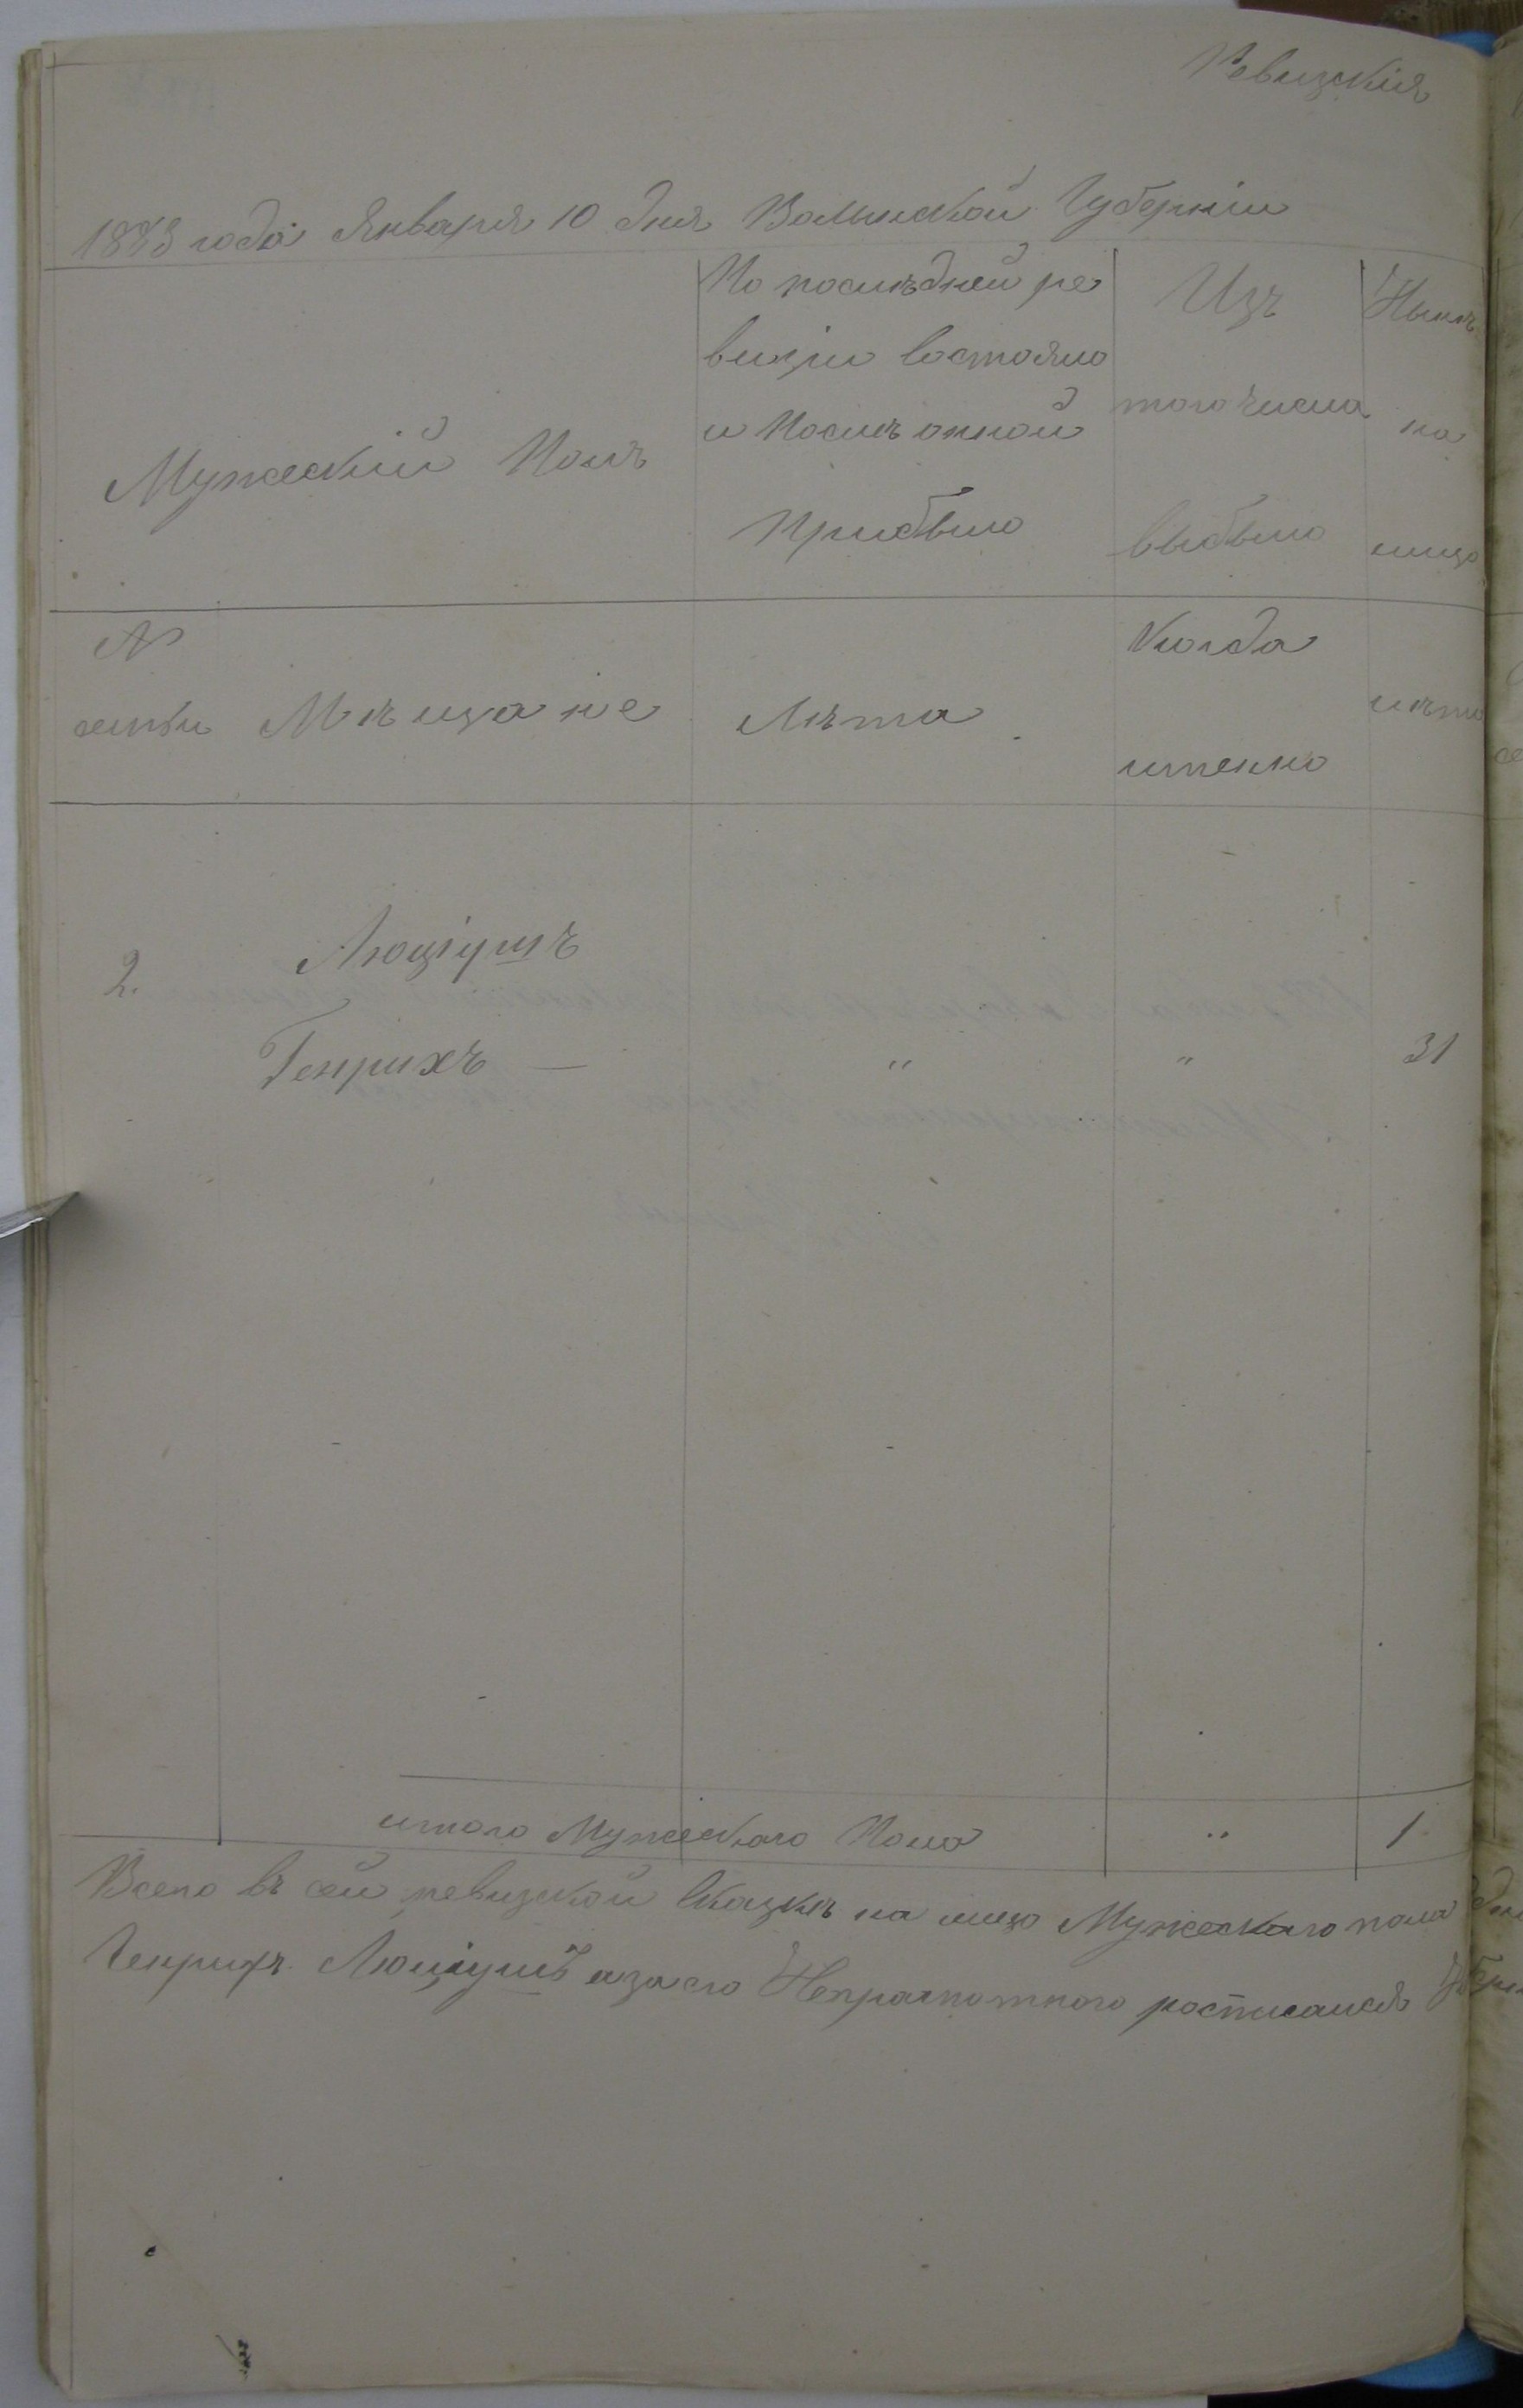 Ревизскія
1873 года Января 10 дня Волынской Губерніи
Мужескій Полъ
По послѣдней ре
визіи состояло
и Послѣ онной
Прибыло
Изъ
того числа
выбыло
Нынѣ
на
лицо
№
семьи
Мѣщане
Лѣта
Когда
именно
лѣта
2.
Люціушъ
Генрихъ — " " 31
итого Мужескаго Пола " 1
Всего въ сей ревизской Сказкѣ на лицо Мужескаго пола
Генрихъ Люціушъ а за его Неграмотного росписался